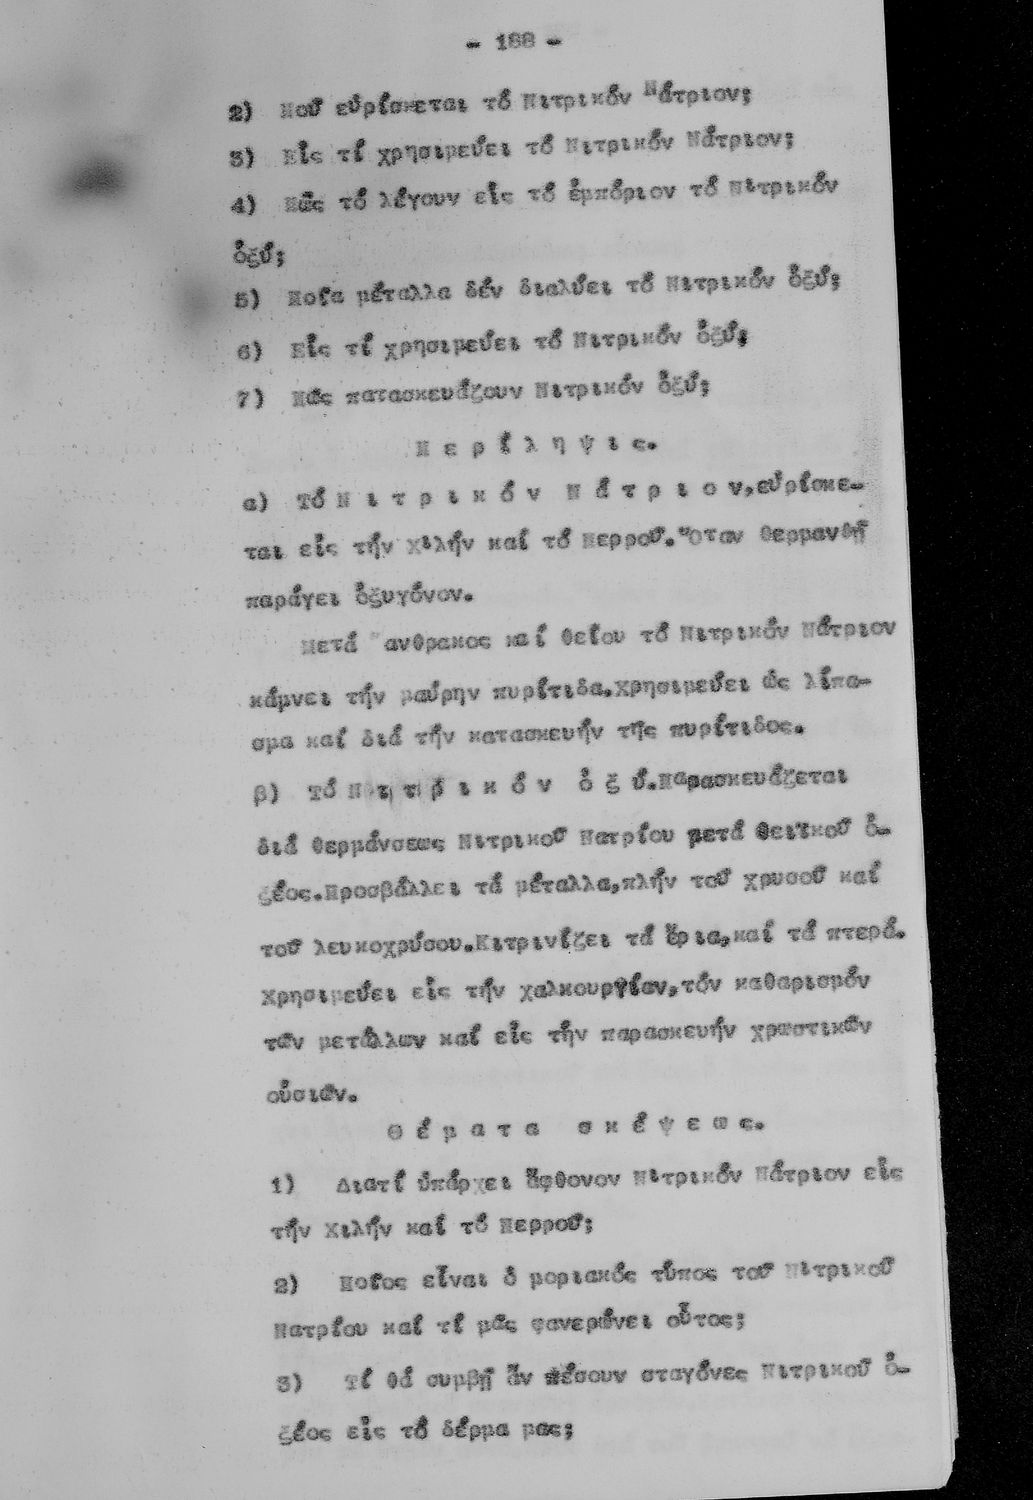 - 188 -
2) Ποῦ εὑρίσκεται τό Νιτρικόν Νάτριον;
3) Εἰς τί χρησιμεύει τό Νιτρικόν Νάτριον;
4) Πῶς τό λέγουν εἰς τό ἐμπόριον τό Νιτρικόν
ὀξύ;
5) Ποῖα μέταλλα δέν διαλύει τό Νιτρικόν ὀξύ;
6) Εἰς τί χρησιμεύει τό Νιτρικόν ὀξύ;
7) Πῶς πατασκευάζουν Νιτρικόν ὀξύ;
Π ε ρ ί λ η ψ ι ς.
α) Τό Ν ι τ ρ ι κ ό ν Ν ά τ ρ ι ο ν, εὑρίσκε-
ται εἰς τήν Χιλήν καί τό Περροῦ. Ὅταν θερμανθῇ
παράγει ὀξυγόνον.
Μετά ἄνθρακος καί θείου τό Νιτρικόν Νάτριον
κάμνει τήν μαύρην πυρίτιδα. Χρησιμεύει ὡς λίπα-
σμα καί διά τήν κατασκευήν τῆς πυρίτιδος.
β) Τό Ν ι τ ρ ι κ ό ν ὀ ξ ύ. Παρασκευάζεται
διά θερμάνσεως Νιτρικοῦ Νατρίου μετά θειϊκοῦ ὀ-
ξέος. Προσβάλλει τά μέταλλα, πλήν τοῦ χρυσοῦ καί
τοῦ λευκοχρύσου. Κιτρινίζει τά ἔρια, καί τά πτερά.
Χρησιμεύει εἰς τήν χαλκουργίαν, τόν καθαρισμόν
τῶν μετάλλων καί εἰς τήν παρασκευήν χρωστικῶν
οὐσιῶν.
Θ έ μ α τ α σ κ έ ψ ε ω ς.
1) Διατί ὑπάρχει ἄφθονον Νιτρικόν Νάτριον εἰς
τήν Χιλήν καί τό Περροῦ;
2) Ποῖος εἶναι ὁ μοριακός τύπος τοῦ Νιτρικοῦ
Νατρίου καί τί μᾶς φανερώνει οὗτος;
3) Τί θά συμβῇ ἄν πέσουν σταγόνες Νιτρικοῦ ὀ-
ξέος εἰς τό δέρμα μας;